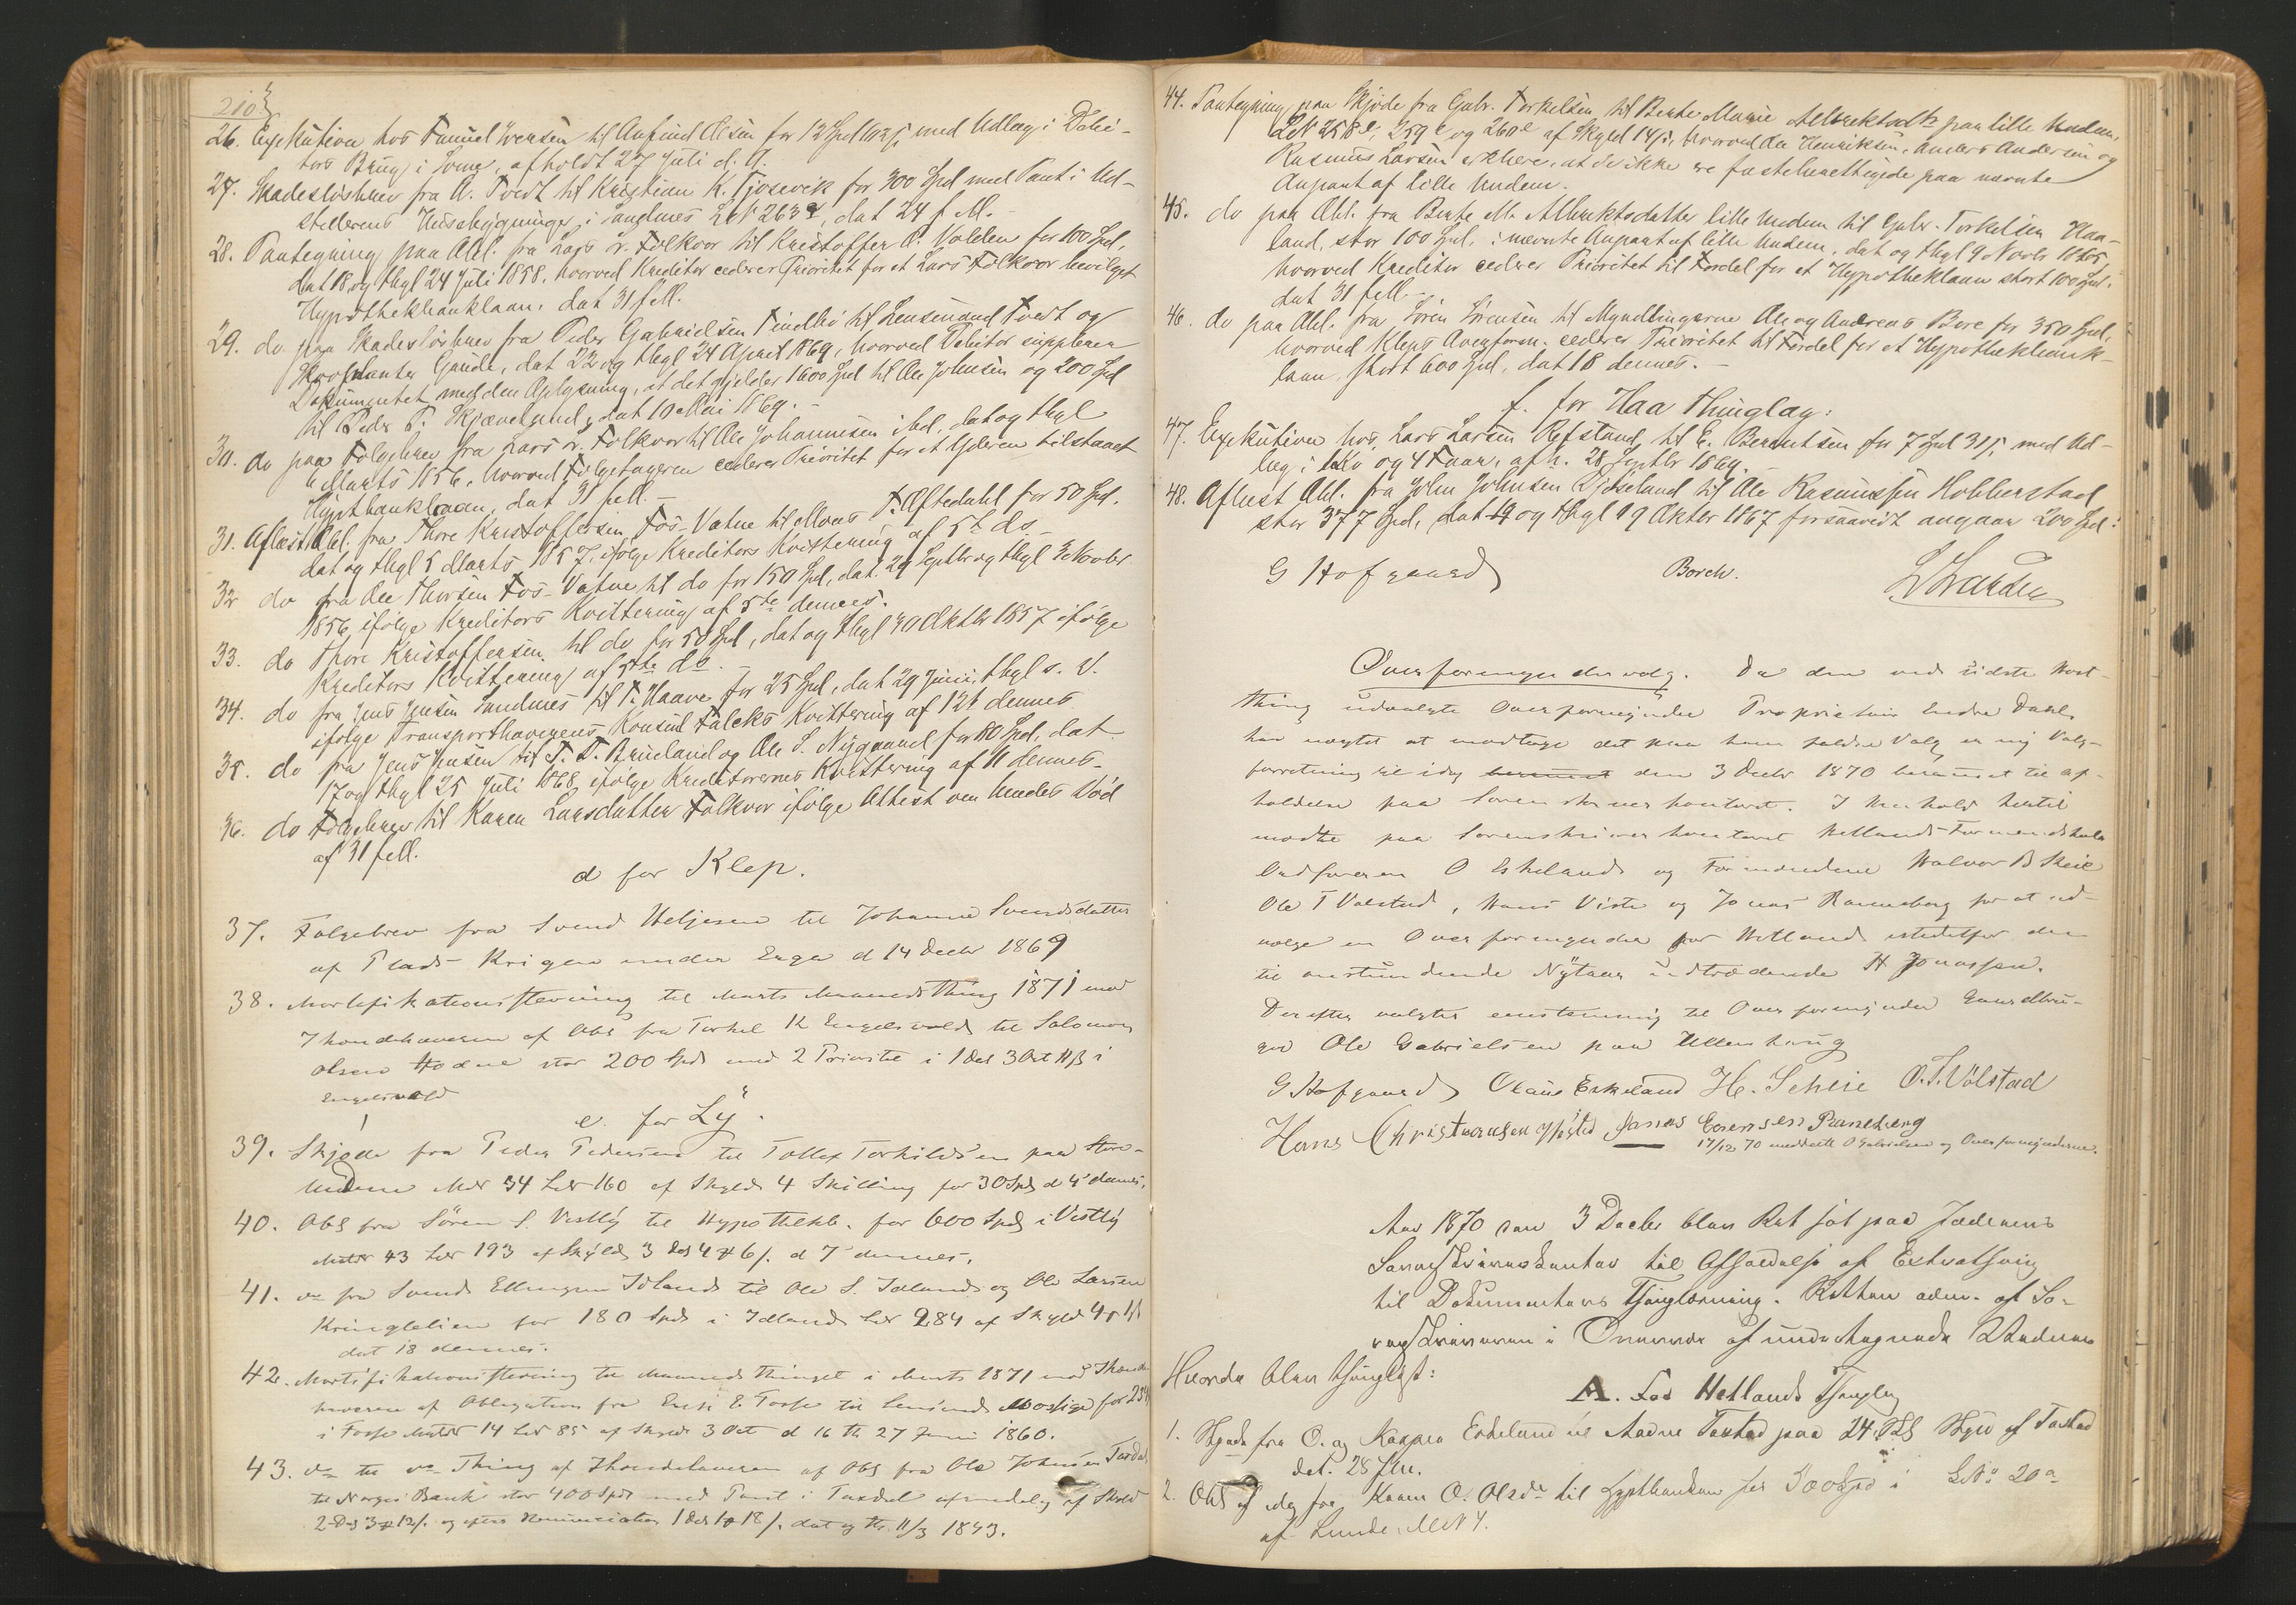 210
26. Exekution hos Tunnel Iversen til Anfind Olsen for 12 Spd 103 ß med Udlæg i Debi-
tors Brug i Soma, afholdt 27 Juli d. A.
27. Skadesløsbrev fra A. Tvedt til Kristian K. Tjosevik for 300 Spd med Pant i Ud-
stederens Huusebygninger i Sandnes LN 263 a, dat 24 f. M. -
28. Paategning paa Obl. fra Lars L. Folkvor til Kristoffer O. Volden for 100 Spd,
dat 18 og thgl 24 Juli 1858, hvorved Kreditor cederer Prioritet for et Lars Folkvor bevilget
Hypothekbanklaan. dat 31 f. M.
29. do paa Skadesløsbrev fra Peder Gabrielsen til Lensmand Tvedt og
Gaude, dat 22 og thgl 24 April 1869, hvorved Debitor supplerer
Dokumentet med den Oplysning, at det gjelder 1600 Spd til Ole Johnsen og 200 Spd
til Peder P. Skjævelund, dat 10 Mai 1869. -
30. do paa Folgebrev fra Lars L. Folkvor til Ole Johannesen ibd. dat og thgl
6 Marts 1856, hvorved Folgetageren cederer Prioritet for et Yderen tilstaaet
Hypthbanklaan, dat 31 f. M. -
31. Aflæst Obl. fra Thore Kristoffersen Fos-Vatne til Moas T. Oftedahl for 50 Spd.
dat og thgl 5 Marts 1857, ifølge Kreditors Kvittering af 5t ds. -
32 do fra Ole Thorsen Fos-Vatne til do for 150 Spd, dat. 29 Septbr og thgl 3 Novbr
1856, ifølge Kreditors Kvittering af 5te dennes.
33. do Thore Kristoffersen til do for 50 Spd, dat og thgl 30 Oktbr 1857 ifølge
Kreditors Kvittering af 5te ds. -
34. do fra Jens Jensen Sandnes til T. Haaver for 25 Spd, dat 29 Juni, thgl s. A.
ifølge Transporthaverens Konsul Falcks Kvittering af 12t dennes
35. do fra Jens Jensen til T. T. Brueland og Ole S. Nygaard for 80 Spd, dat
17 og thgl 25 Juli 1868 ifølge Kreditorernes Kvittering af 11 dennes.
36. do Folgebrev til Karen Larsdatter Folkvor ifølge Attest om hendes Død
af 31 f. M.
d for Klep.
37. Folgebrev fra Svend Heljesen til Johanne Svendsdatter
af Plads Krigen under Erga d 14 Decbr 1869
38. Mortifikationsstevning til Marts Maanedsthing 1871 mod
Ihændehaveren af Obl fra Torkel K Engelsvold til Salomon
Olsen Hodne stor 200 Spd med 2 Priorite i 1 Dal 3 Ort 11 ß i
Engelsvold
e. for Ly.
39. Skjøde fra Peder Pedersen til Tollef Torkildsen paa Store-
Undem Mdr 34 Lnr 160 af Skyld 4 Skilling for 30 Spd d 4' dennes.
40. Obl fra Sören S. Vestly til Hypothekb. for 600 Spd i Vestly
Matr 43 Lnr 193 af Skyld 3 Dal 4 Ort 6 ß. d 7' dennes.
41. do fra Svend Ellingsen Idland til Ole S. Idland og Ole Larsen
Kringlelien for 180 Spd i Idland Lnr 284 af Skyld
dat 18 dennes.
42. Mortifikationsstevning til Maanedsthinget i Marts 1871 mod Ihænde
haveren af Obligation fra Erik E. Fosse til for
i Fosse Matr 14 Lnr 85 af Skyld 3 Ort d 16 th 27 Juni 1860.
43. do til do Thing af Ihændehaveren af Obl fra Ole Johnsen Taxdal
til Norges Bank stor 400 Spd med Pant i Taxdal af Skyld
2 Dal 3 Ort 12 ß. og efter 1 Dal 1 Ort 18 ß. dat og th. 11/3 1843.
44. Paategning paa Skjøde fra Gabr. Torkelsen til Berte Marie Albrektsdtr paa lille Undem,
LN 258 e, 259 e og 260 e af Skyld 14 ß, hvorved Ole Henriksen, Anders Andersen og
Rasmus Larsen erklære, at de ikke ere fæsteberettigede paa nævnte
Anpart af lille Undem.
45. do paa Obl. fra Berte M. Albrektsdatter lille Undem til Gabr. Torkelsen Haa-
land, stor 100 Spd, i nævnte Anpart af lille Undem, dat og thgl 9 Novbr 1865,
hvorved Kreditor cederer Prioritet til Fordel for et Hypotheklaan stort 100 Spd.
dat 31 f. M. -
46. do paa Obl. fra Sören Sörensen til Myndlingerne Ole og Andreas Bore for 350 Spd,
hvorved Kleps Overform. cederer Prioritet til Fordel for et Hypothekbank-
laan, stort 600 Spd, dat 18 dennes. -
f. for Haa Thinglag:
47. Exekution hos Lars Larsen Refsland til E. Berentsen for 7 Spd 31 ß, med Ud-
læg i 1 Ko og 4 Faar, afh. 28 Septbr 1869. -
48. Aflæst Obl. fra John Johnsen til Ole Rasmussen Hobberstad
stor 377 Spd, dat 19 og thgl 19 Oktbr 1867 forsaavidt angaar 200 Spd:
G Hofgaard Borch.
Overformyndervalg. Da den ved sidste Høst-
thing udvalgte Overformynder Proprietair Endre Dahle
har nægtet at modtage det paa ham faldne Valg er ny Valg-
forretning til idag berammet den 3 Decbr 1870 berammet til af-
holdelse paa Sorenskriverkontoret. I Henhold hertil
mødte paa Sorenskriverkontoret Hetlands Formandskabs
Ordfører O Eskeland og Formændene Halvor B Skeie
Ole T Volstad, Hans Viste og Jonas Ranneberg for at ud-
vælge en Overformynder for Hetland istedetfor den
til anstundende Nytaar udtrædende H Jonassen.
Derefter valgtes eenstemmig til Overformynder Gaardbru-
ger Ole Gabrielsen paa Ullenhaug
G Hofgaard Olaus Eskeland H. Scheie O. T. Volstad
Hans Christiansen Jonas Evensen Raneberg
17/12 70 meddeelt O Gabrielsen og Overformynderne.
Aar 1870 den 3 Decbr blev Ret sat paa Jæderens
Sorenskriverkontor til Afholdelse af Extrathing
til Dokumenters Thinglæsning. Retten adm. af So-
renskriveren i Overvær af undertegnede Vidner
Hvorda blev thinglyst:
A. For Hetlands Thinglag
1. Skjøde fra O. og Kaspra Eskeland til Aadne Tastad paa 24 ß Skyld af Tastad
dat. 28 f. M.
2. Obl af idag fra Karen O. Olsdr til Hypthbanken for 300 Spd i LN° 20 a
af Lunde MN 4.